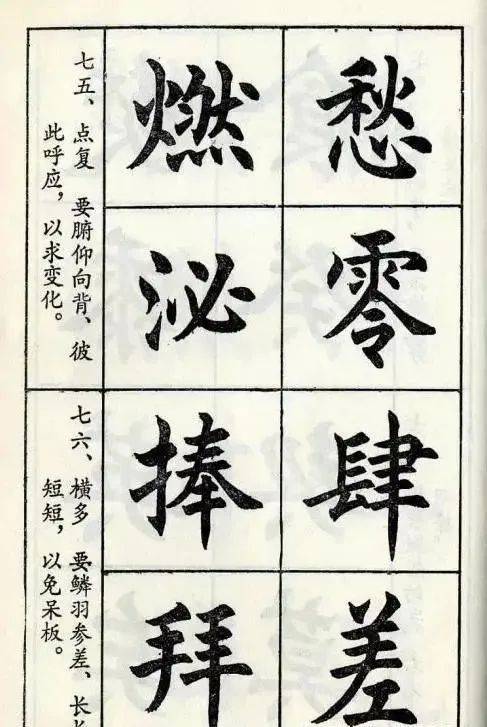 愁零
燃泌
七五、点复 要腑仰向背、彼
此呼应，以求变化。
肆差
捧拜
七六、横多 要鳞羽参差、长长
短短，以免呆板。